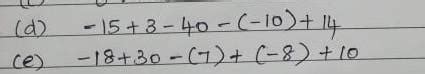 (d) -15+3-40-(-10)+14
(e) -18+30-(7)+(-8)+10